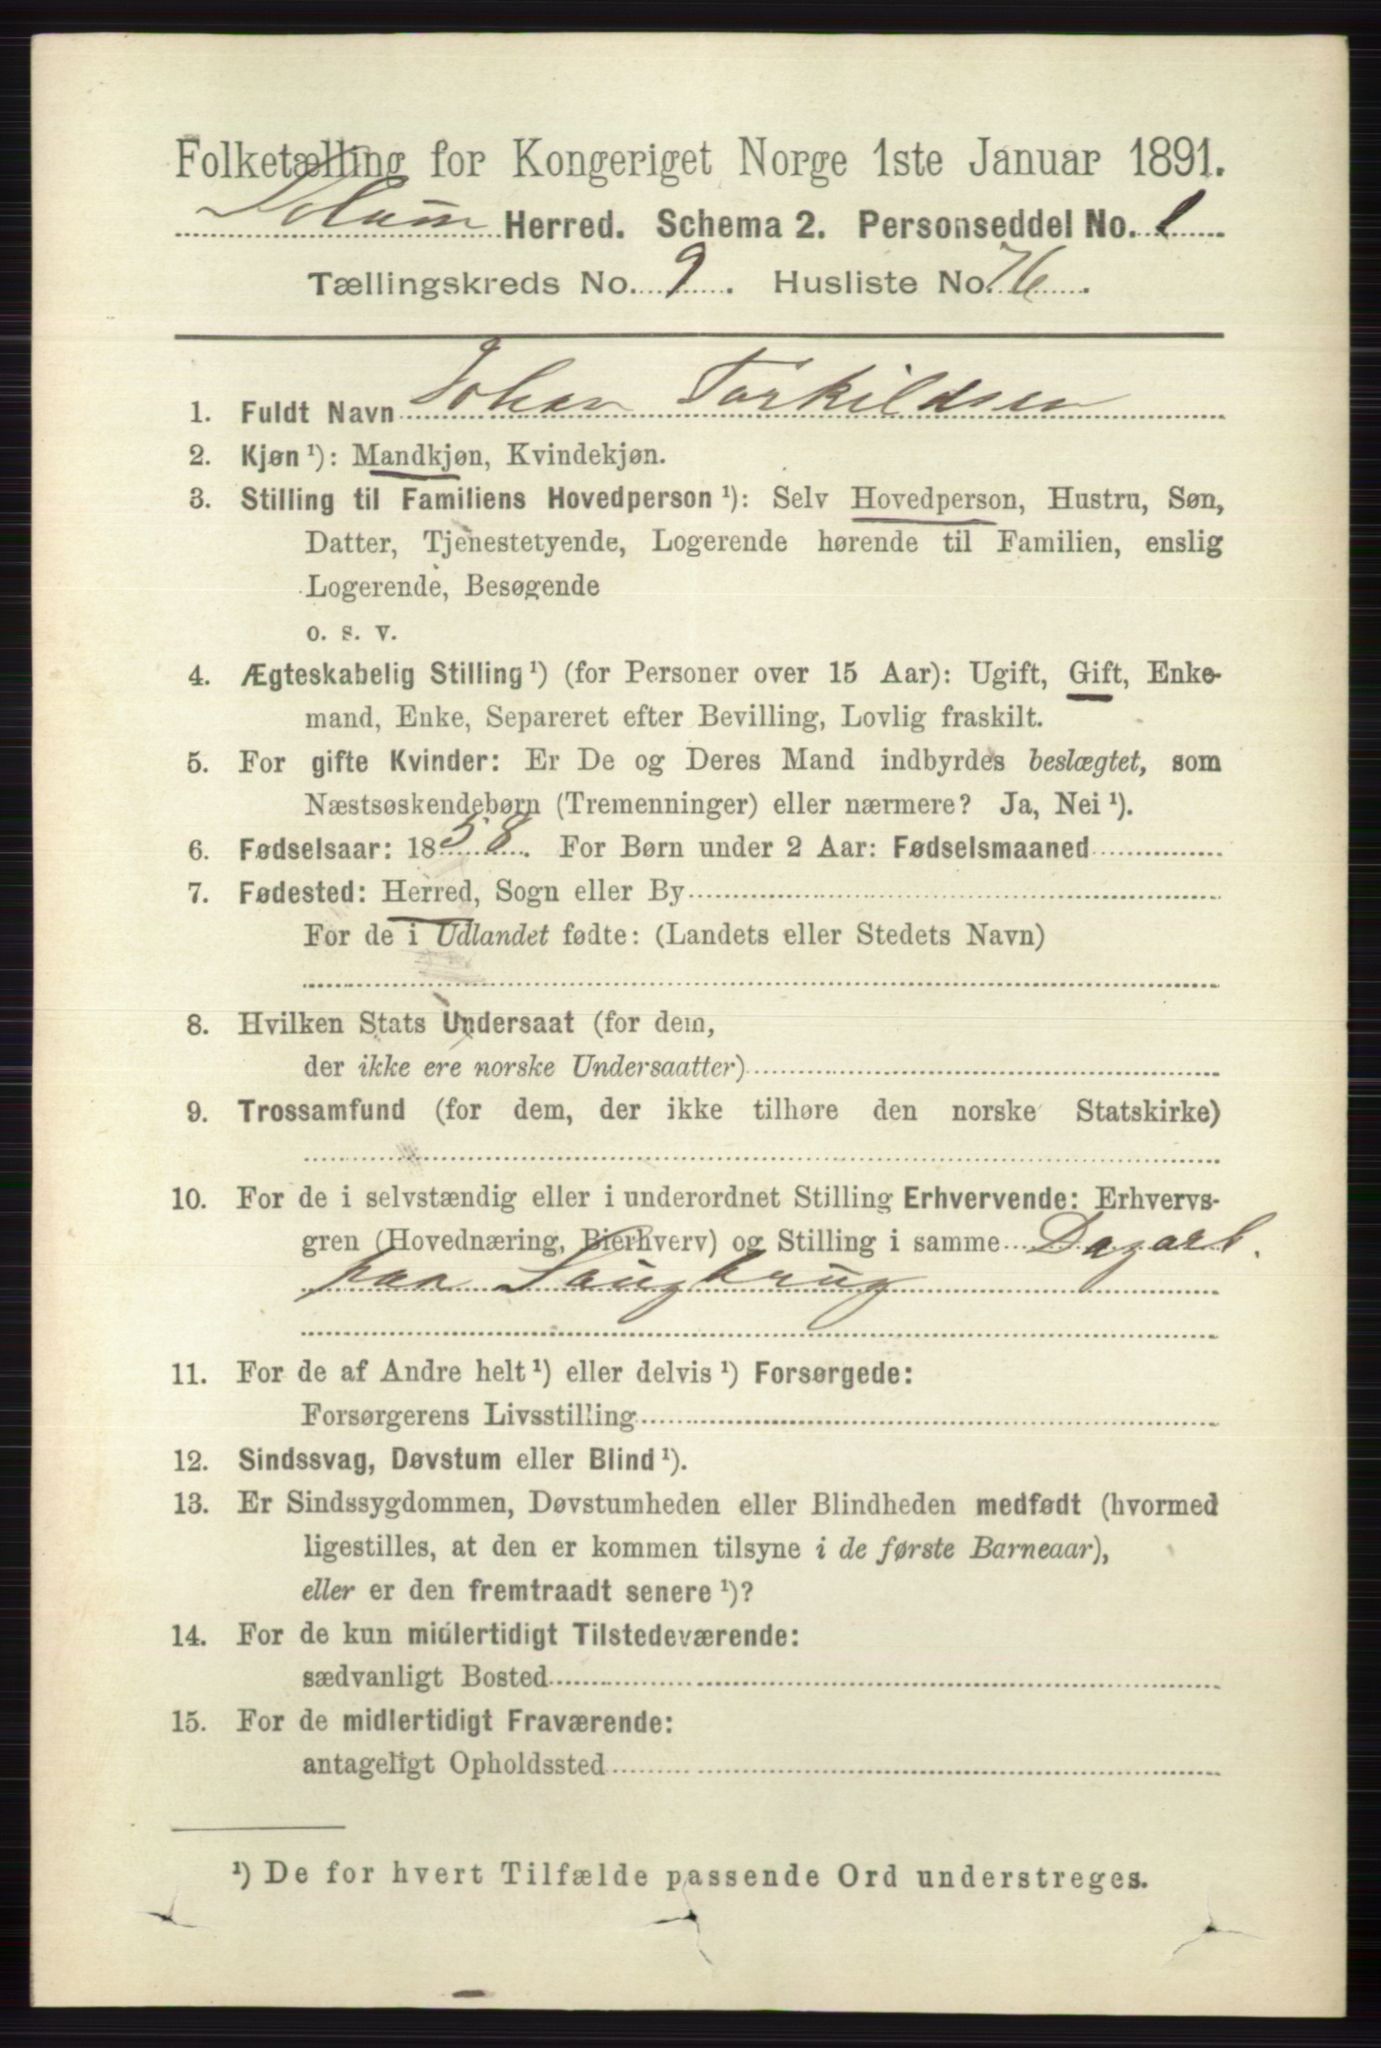 Folketælling for Kongeriget Norge 1ste Januar 1891.
Solum Herred. Schema 2. Personseddel No. 1
Tællingskreds No. 9. Husliste No. 76.
1. Fuldt Navn Johan Torkildsen
2. Kjøn ¹): Mandkjøn, Kvindekjøn.
3. Stilling til Familiens Hovedperson ¹): Selv Hovedperson, Hustru, Søn,
Datter, Tjenestetyende, Logerende hørende til Familien, enslig
Logerende, Besøgende
o. s. v.
4. Ægteskabelig Stilling ¹) (for Personer over 15 Aar): Ugift, Gift, Enke-
mand, Enke, Separeret efter Bevilling, Lovlig fraskilt.
5. For gifte Kvinder: Er De og Deres Mand indbyrdes beslægtet, som
Næstsøskendebørn (Tremenninger) eller nærmere? Ja, Nei ¹).
6. Fødselsaar: 1858. For Børn under 2 Aar: Fødselsmaaned
7. Fødested: Herred, Sogn eller By
For de i Udlandet fødte: (Landets eller Stedets Navn)
8. Hvilken Stats Undersaat (for dem,
der ikke ere norske Undersaatter)
9. Trossamfund (for dem, der ikke tilhøre den norske Statskirke)
10. For de i selvstændig eller i underordnet Stilling Erhvervende: Erhvervs-
gren (Hovednæring, Bierhverv) og Stilling i samme Dagarb.
paa Saugbrug
11. For de af Andre helt ¹) eller delvis ¹) Forsørgede:
Forsørgerens Livsstilling
12. Sindssvag, Døvstum eller Blind ¹).
13. Er Sindssygdommen, Døvstumheden eller Blindheden medfødt (hvormed
ligestilles, at den er kommen tilsyne i de første Barneaar),
eller er den fremtraadt senere ¹)?
14. For de kun midlertidigt Tilstedeværende:
sædvanligt Bosted
15. For de midlertidigt Fraværende:
antageligt Opholdssted
¹) De for hvert Tilfælde passende Ord understreges.